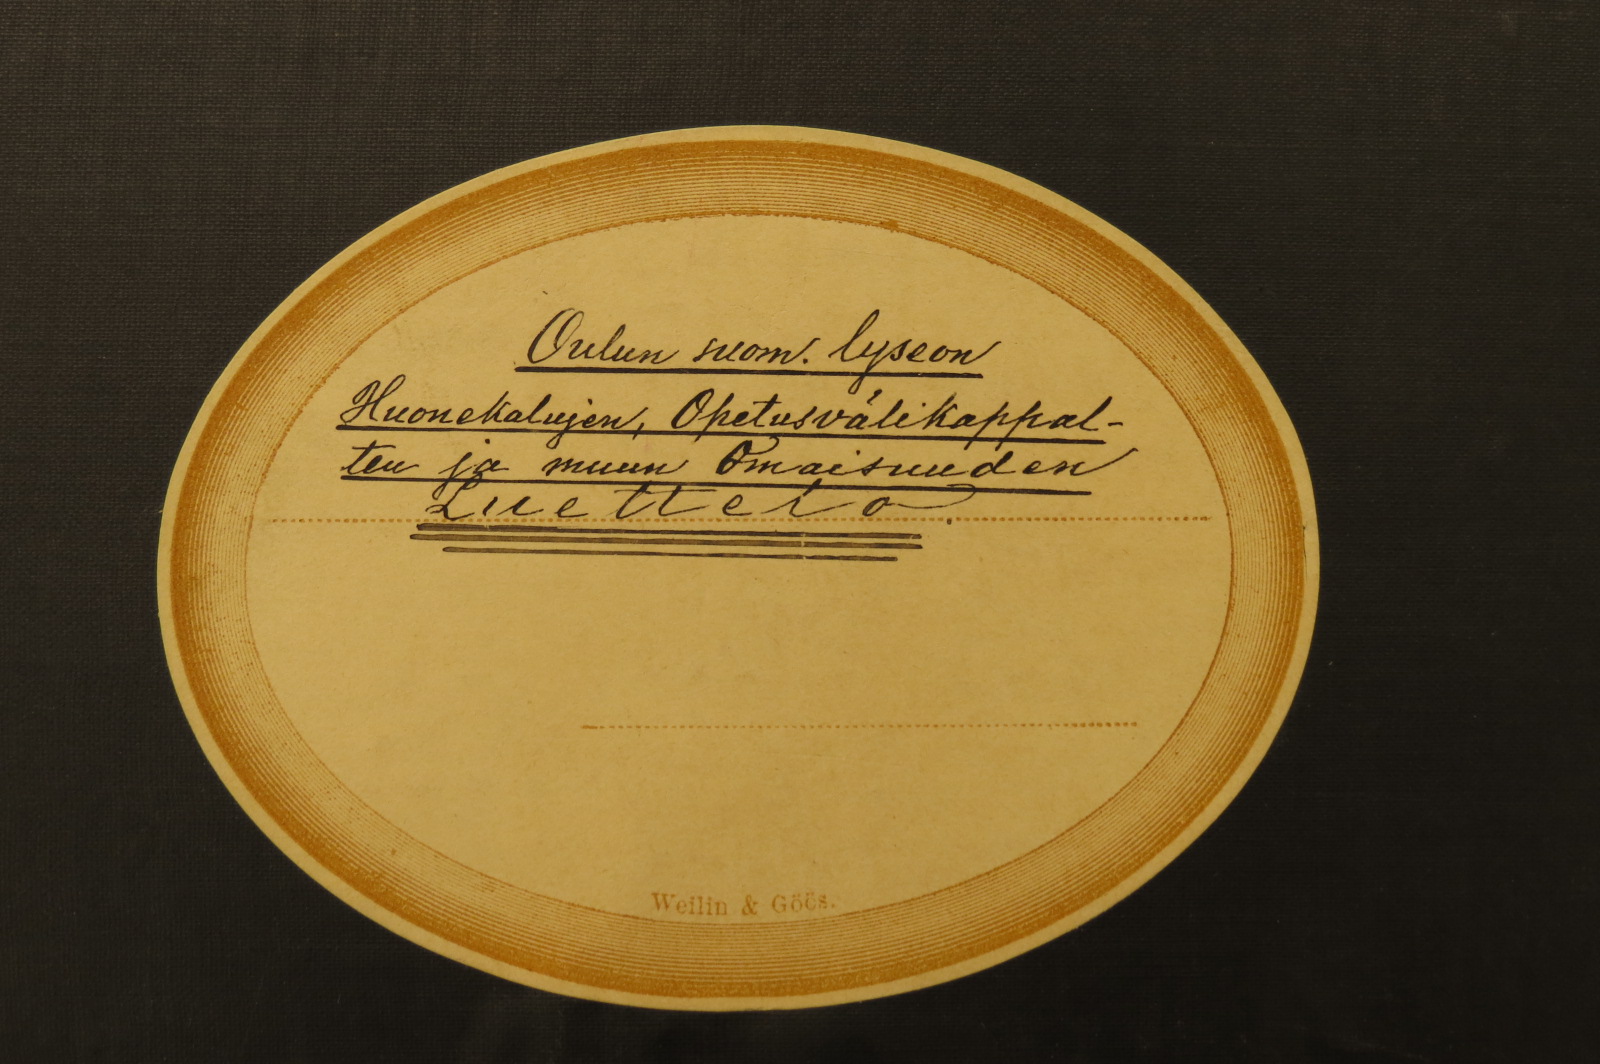 Oulun suom. lyseon
Huonekalujen, Opetusvälikappal-
ten ja muun Omaisuuden
Luettelo
Weilin & Göös.